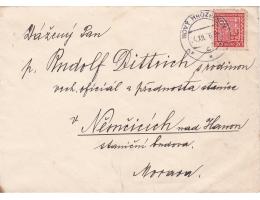 Vážený Pan
p. Rudolf Dittrich s rodinou
vrch. oficiál a přednosta stanice
v Němčicích nad Hanou
staniční budova.
Morava.